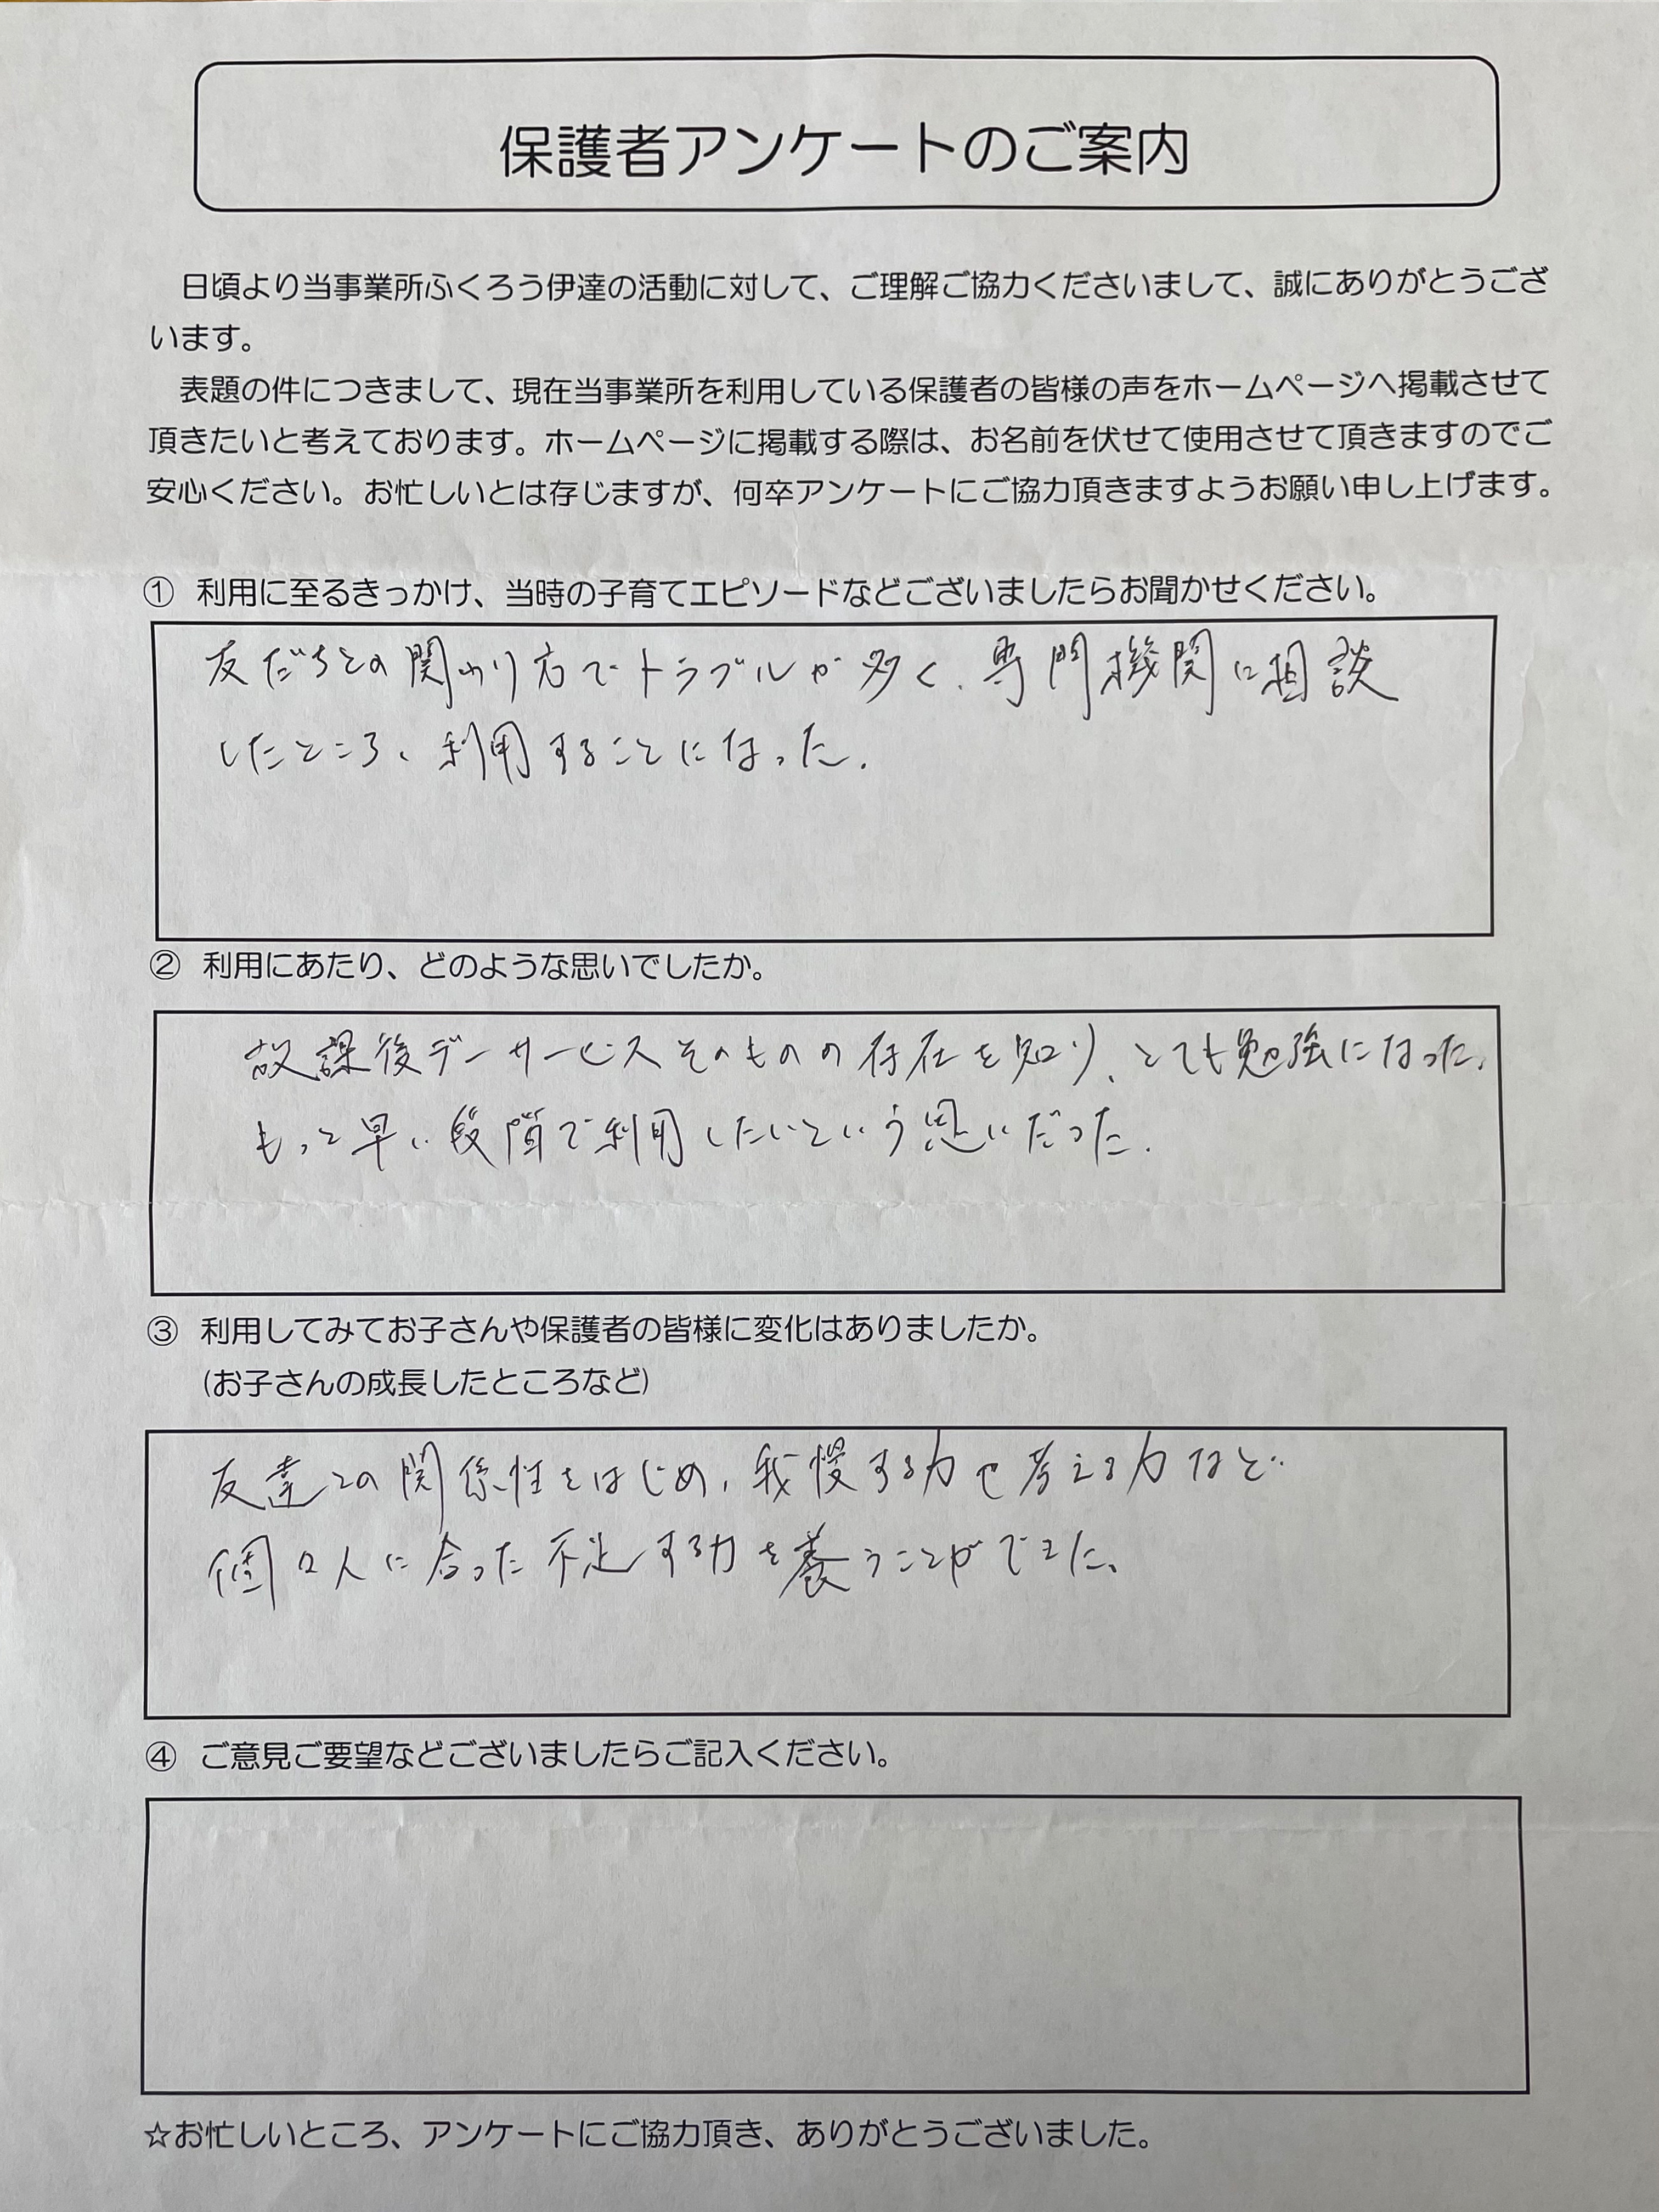 保護者アンケートのご案内
日頃より当事業所ふくろう伊達の活動に対して、ご理解ご協力くださいまして、誠にありがとうござ
います。
表題の件につきまして、現在当事業所を利用している保護者の皆様の声をホームページへ掲載させて
頂きたいと考えております。ホームページに掲載する際は、お名前を伏せて使用させて頂きますのでご
安心ください。お忙しいとは存じますが、何卒アンケートにご協力頂きますようお願い申し上げます。
① 利用に至るきっかけ、当時の子育てエピソードなどございましたらお聞かせください。
友だちとの関わり方でトラブルが多く、専門機関に相談
したところ、利用することになった。
② 利用にあたり、どのような思いでしたか。
放課後デーサービスそのものの存在を知り、とても勉強になった。
もっと早い段階で利用したいという思いだった。
③ 利用してみてお子さんや保護者の皆様に変化はありましたか。
(お子さんの成長したところなど)
友達との関係性をはじめ、我慢する力や考える力など
個々人に合った不足する力を養うことができた。
④ ご意見ご要望などございましたらご記入ください。
☆お忙しいところ、アンケートにご協力頂き、ありがとうございました。